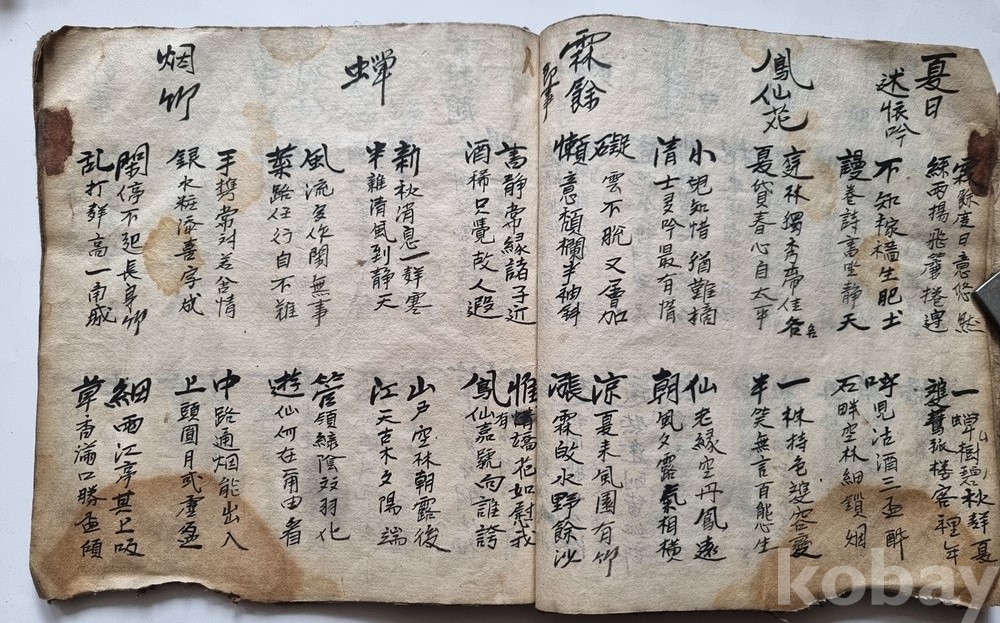 夏日
述懷吟
雲餘度日意悠然
一蟬樹碧秋鮮夏
絲雨揚飛簾捲邊
孤樓客裡年
不知稼穡生肥土
呼児沽酒三盃酔
謾卷詩書坐静天
石畔空林細鎖烟
鳳仙花
庭林獨秀帝佳名
一株持色雙容変
夏貸春心自太平
半笑無言百能生
小児知惜猶難摘
仙老緣空丹鳳遠
清士多吟最有情
朝風夕露氣相橫
霖餘
即事
礙雲不脫又層加
凉夏来風園有竹
懶意頹欄半袖斜
漲霖故水野餘沙
書静常緣諸子近
惟有花如慰我
酒稀只覺故人遐
鳳仙嘉號向誰誇
蟬
新秋消息一群寒
山戶空林朝露後
半雜清風到静天
江天古木夕陽端
風流多作閑無事
管領綠陰双羽化
葉路任行自不難
遊仙何在爾由看
烟竹
手携常对若含情
中路通烟能出入
銀水粧添喜字成
上頭圓月或虛盈
閑停不起長身竹
細雨江亭其上吸
乱打群高一南城
草香滿口勝盃傾
kobay